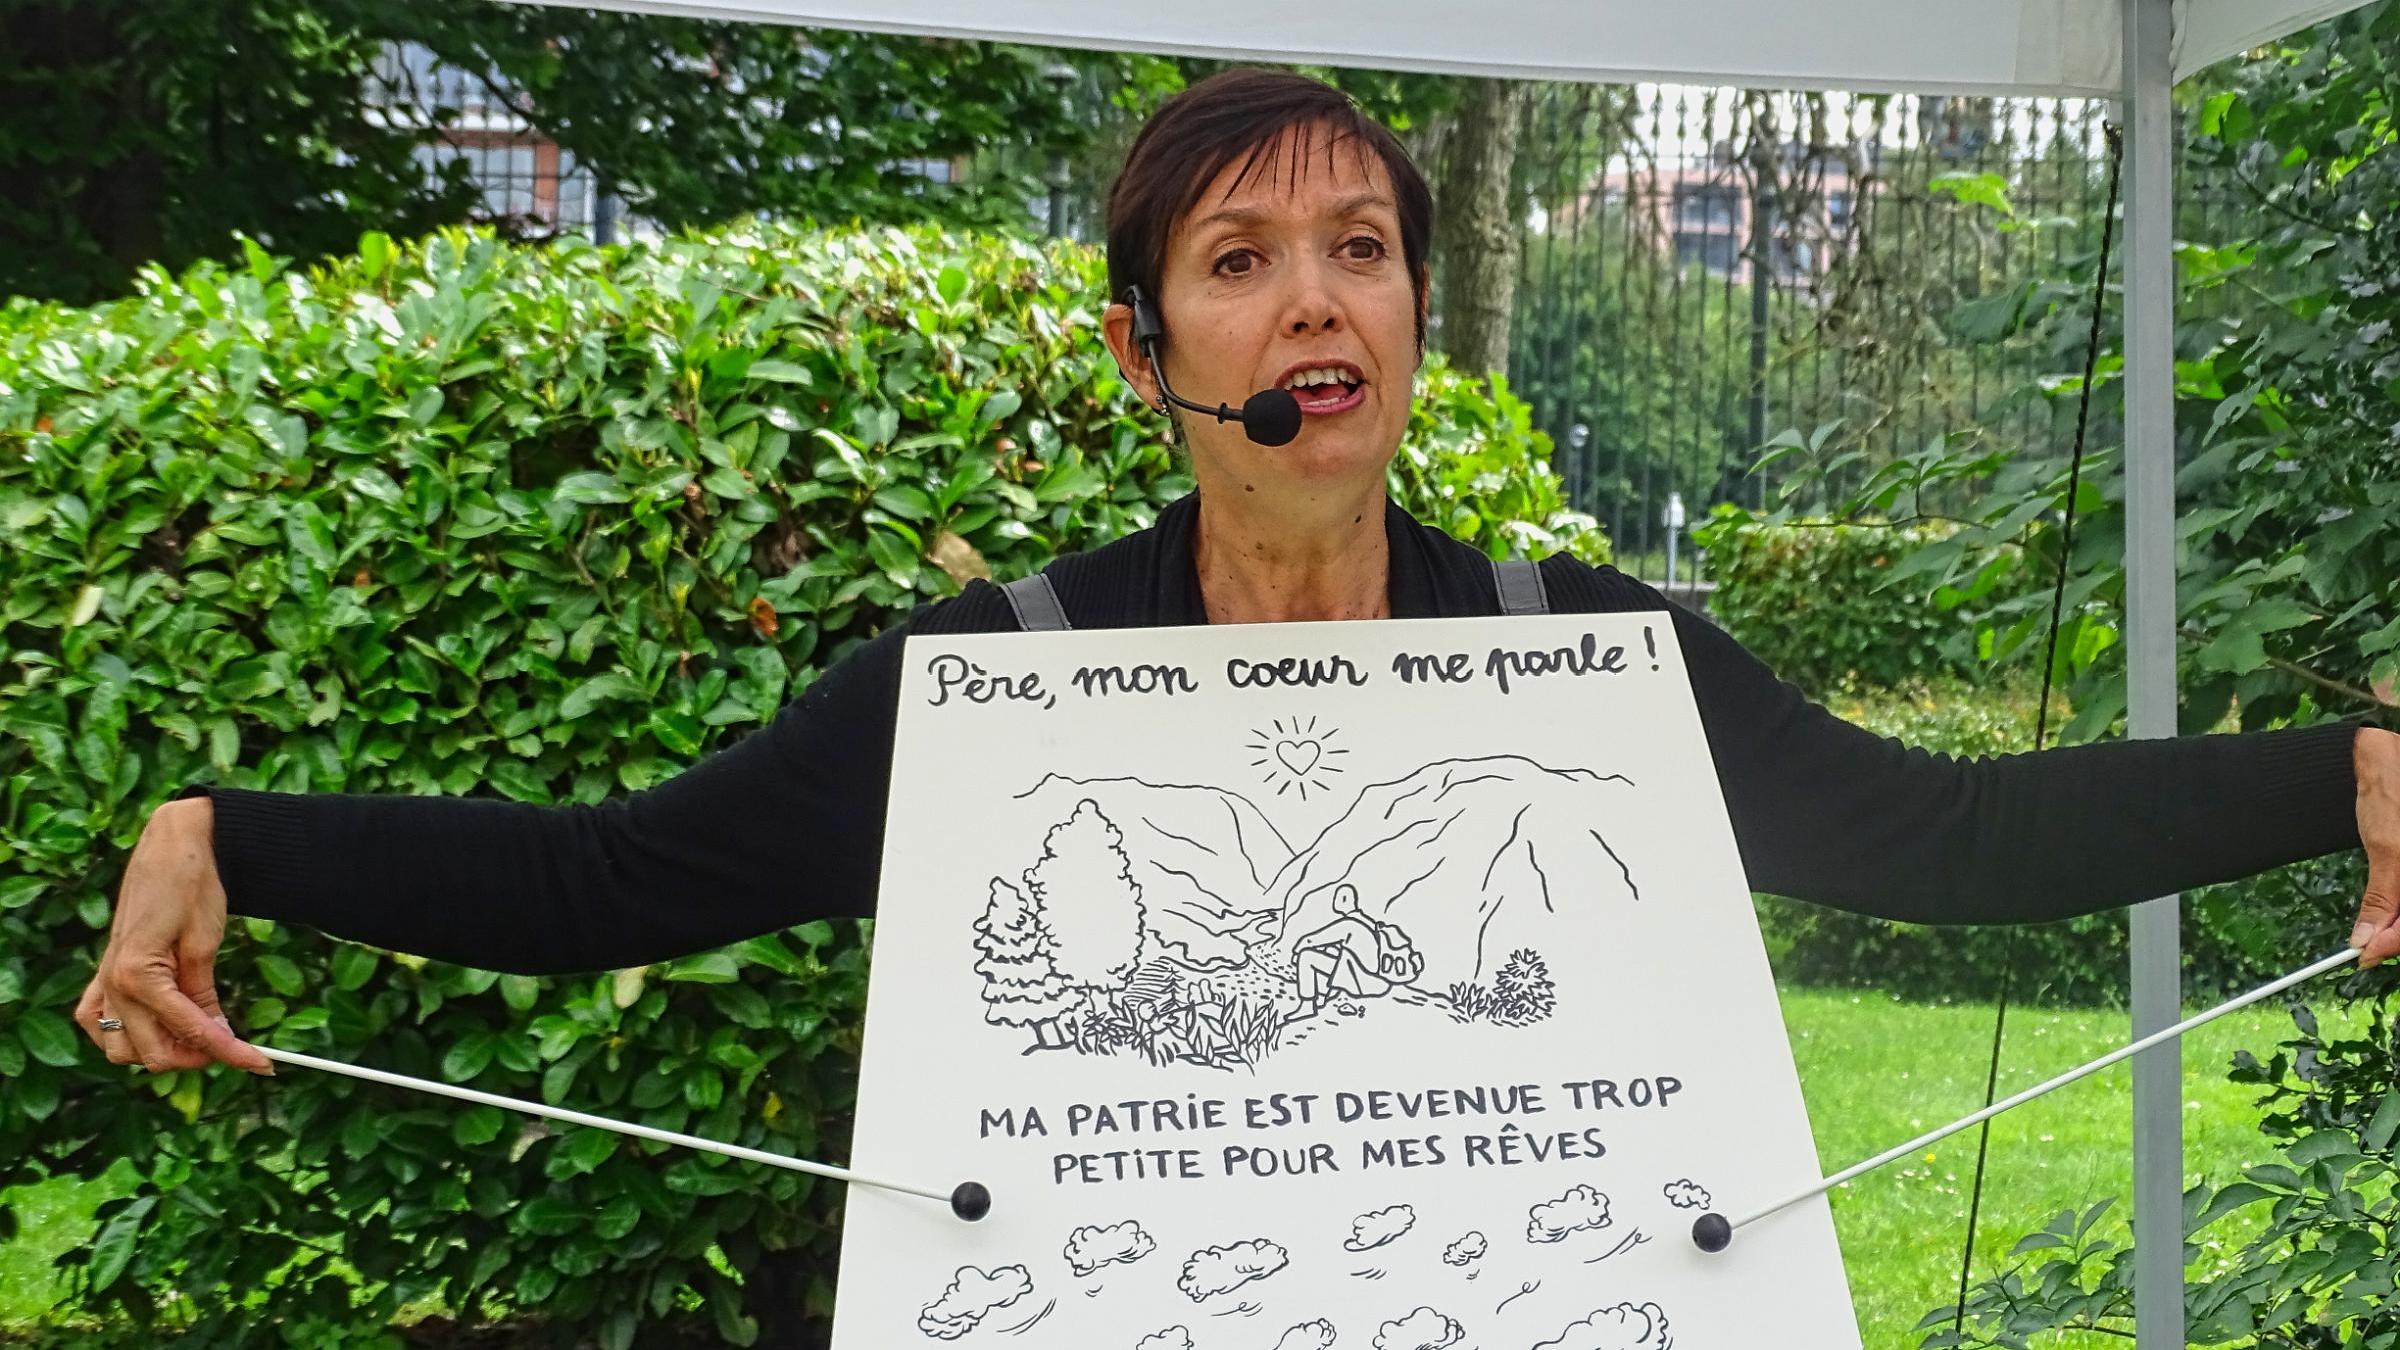 Père, mon coeur me parle !
MA PATRiE EST DEVENUE TROP
PETiTE POUR MES RÊVES